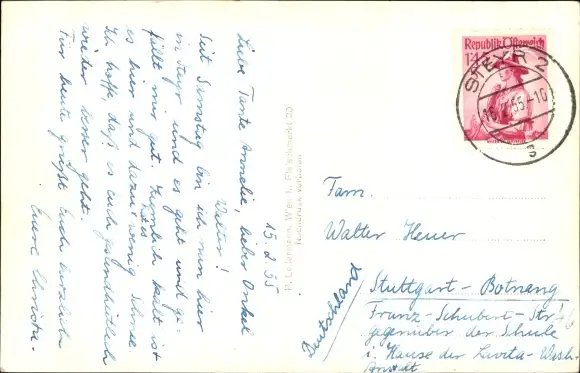 15. 2. 55
Liebe Tante Annelie, lieber Onkel
Walter!
Seit Samstag bin ich nun hier
in Steyr und es geht und ge-
fällt mir gut. Ziemlich kalt ist
es hier und dazu wenig Schnee
Ich hoffe, daß es euch gesundheitlich
wieder besser geht.
Für heute grüßt Euch herzlich
Eure Christa.
P. Ledermann, Wien I., Fleischmarkt 20
Nachdruck verboten
Republik Österreich
STEYR 2
55-10
Fam.
Walter Heuer
Stuttgart - Botnang
Franz - Schubert - Str.
gegenüber der Schule
i. Hause der
Anstalt
Deutschland